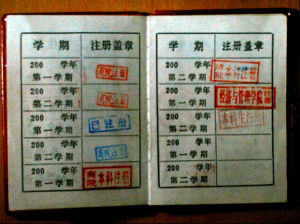 学 期 注册盖章
200 学年
第一学期
200 学年
第二学期
200 学年
第一学期 已注册
200 学年
第二学期
200 学年
第一学期 本科注册
学 期 注册盖章
200 学年
第二学期
200 学年
第一学期 经济与管理学院
200 学年
第二学期 本科生注册
200 学年
第一学期
200 学年
第二学期